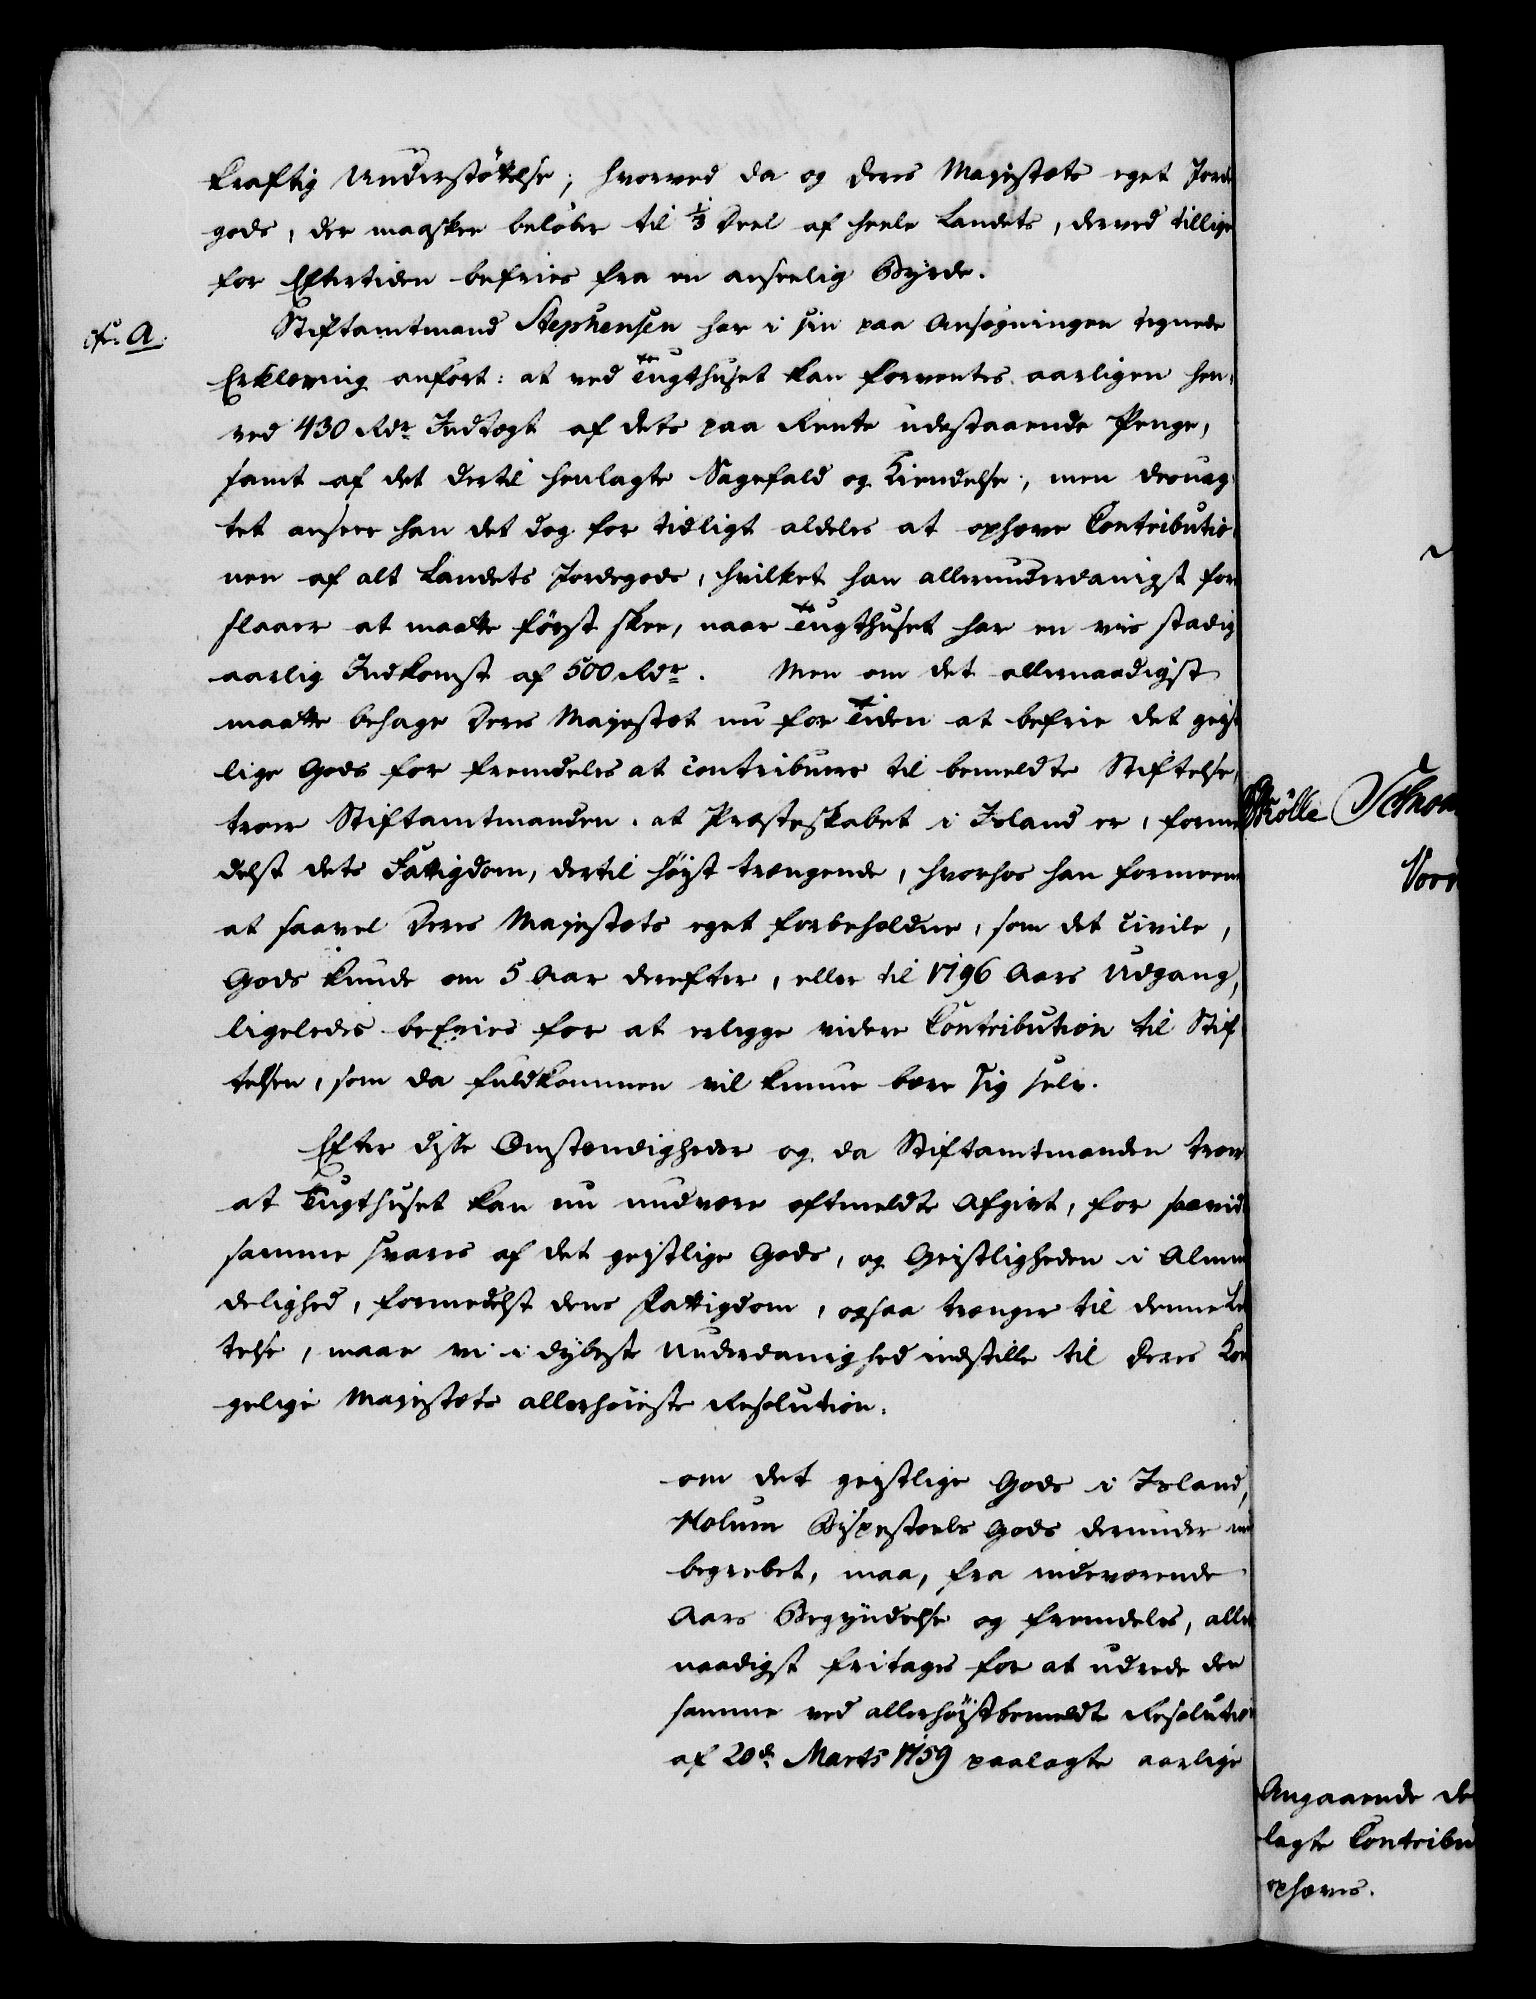 kraftig Understøttelse; hvorved da og Deres Majestæts eget Jorde
gods, der maaskee beløber til 1/3 Deel af heele Landets, derved tillige
for Eftertiden befries fra en anseelig Byrde.
cfr. A.
Stiftamtmand Stephensen har i sin paa Ansøgningen tegnede
Erklæring anført: at ved Tugthuset kan forventes aarligen hen-
ved 430 Rdr. Indtægt af dets paa Rente udestaaende Penge,
samt af det dertil henlagte Sagefald og Kiendelse, men deruag-
tet anseer han det dog for tidligt aldeles at ophæve Contributio-
nen af alt Landets Jordegods, hvilket han allerunderdanigst fore
slaaer at maatte først skee, naar Tugthuset har en vis stadig
aarlig Indkomst af 500 Rdr. Men om det allernaadigst
maatte behage Deres Majestæt nu for Tiden at befrie det geist
lige Gods for fremdeles at contribuere til bemeldte Stiftelse,
troer Stiftamtmanden, at Præsteskabet i Island er, forme
delst dets Fattigdom, dertil høist trængende, hvorhos han formeener
at saavel Deres Majestæts eget forbeholdne, som det civile,
Gods kunde om 5 Aar derefter, eller til 1796 Aars Udgang,
ligeledes befries for at erlegge videre Contribution til Stif-
telsen, som da fuldkommen vil kunne bære sig selv.
Efter disse Omstændigheder og da Stiftamtmanden troer
at Tugthuset kan nu undvære oftmeldte Afgivt, for saavidt
samme svares af det geistlige Gods, og Geistligheden i Almin
delighed, formedelst dens Fattigdom, ogsaa trænger til denne Let
telse, maae vi i dybeste Underdanighed indstille til Deres Kon
gelige Majestæts allerhøieste Resolution:
om det geistlige Gods i Island,
Holum Bispestoels Gods derunder ind
begrebet, maa, fra indeværende
Aars Begyndelse og fremdeles, aller
naadigst fritages for at udrede den
samme ved allerhøistbemeldte Resolution
af 20de Marts 1759 paalagte aarlige
Angaaende de
lagte Contribu
ophæves.